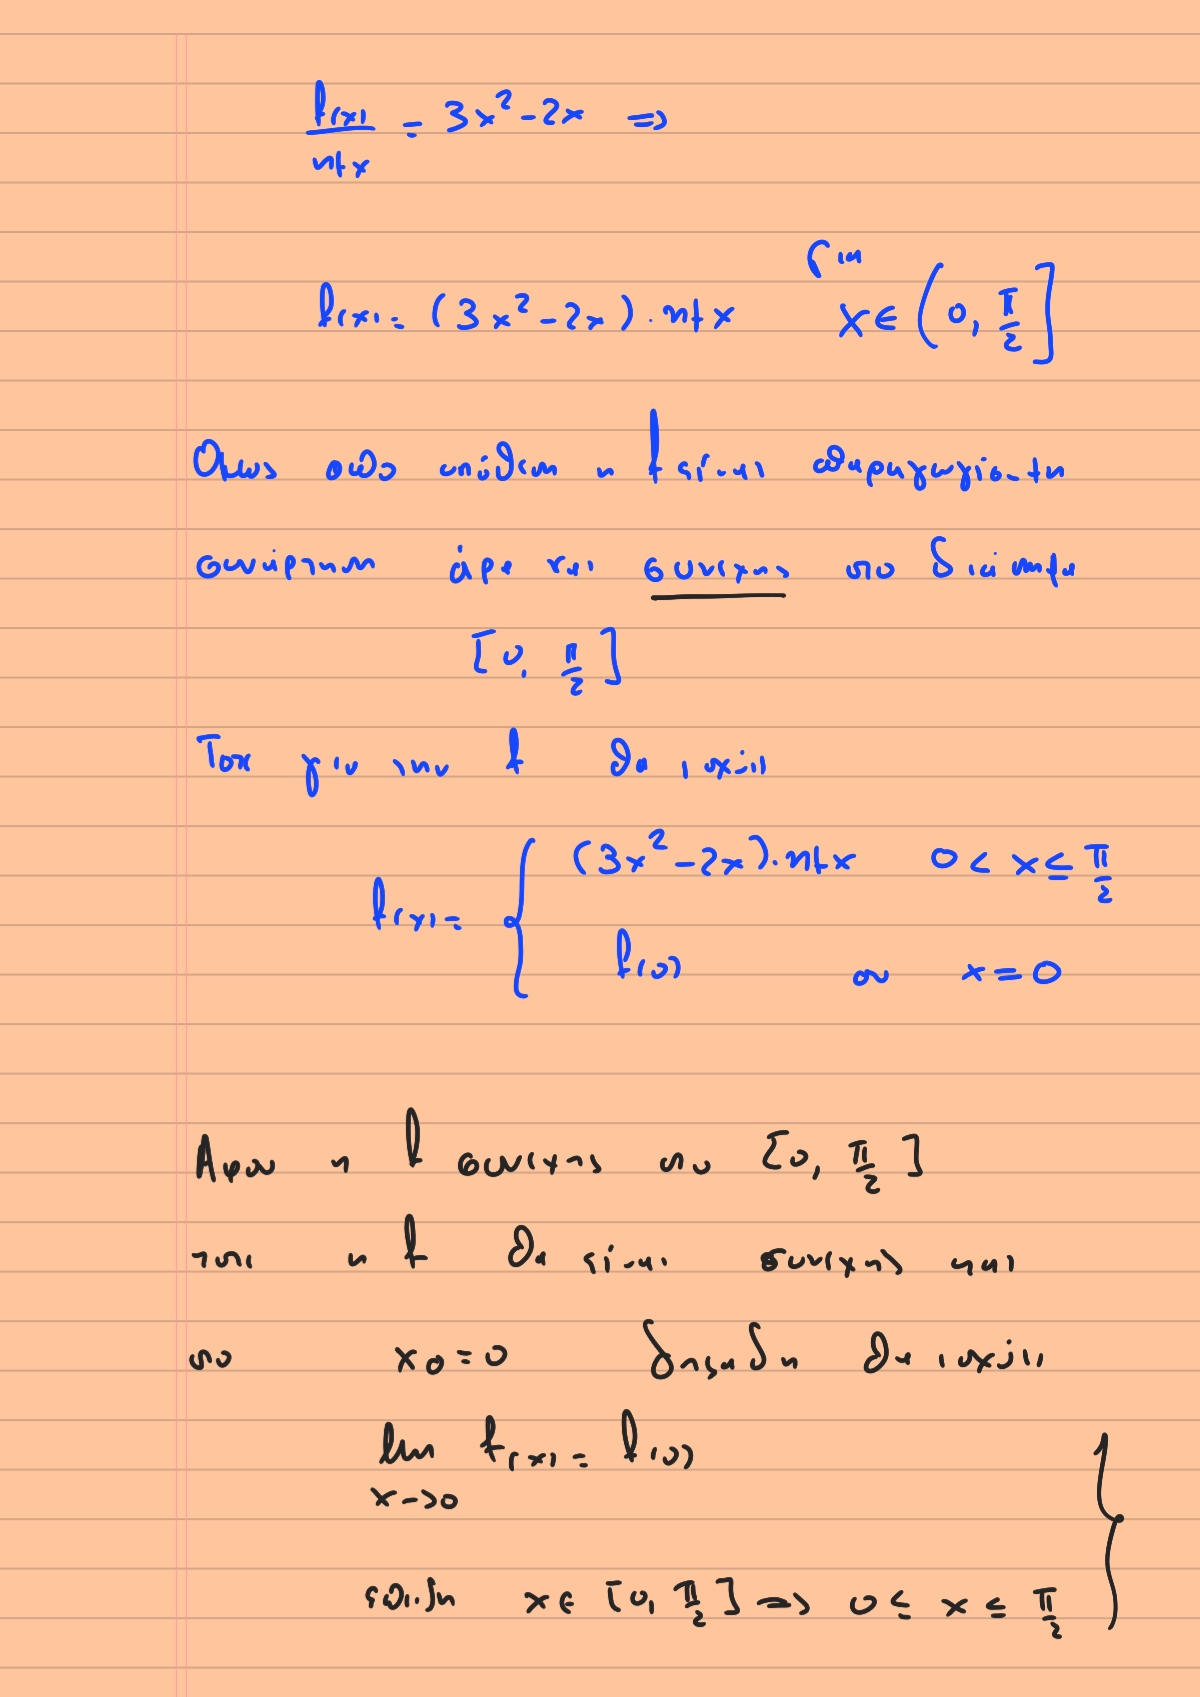 f(x)/ημx = 3x² - 2x ⇒
για
f(x) = (3x² - 2x) · ημx x ∈ (0, π/2]
Όμως από υπόθεση η f είναι παραγωγίσιμη
συνάρτηση άρα και συνεχης στο διάστημα
[0, π/2]
Τοτε για την f θα ισχύει
f(x) = { (3x² - 2x) · ημx 0 < x ≤ π/2
f(0) αν x = 0
Αφου η f συνεχης στο [0, π/2]
τοτε η f θα είναι συνεχης και
στο x₀ = 0 δηλαδη θα ισχύει
lim f(x) = f(0)
x → 0
επειδη x ∈ [0, π/2] ⇒ 0 ≤ x ≤ π/2 }